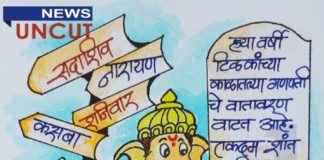 NEWS
UNCUT
सदाशिव
नारायण
शनिवार
कसबा
ह्या वर्षी
टिळकांच्या
काळातल्या गणपती
चे वातावरण
वाटत आहे.
एकदम शांत